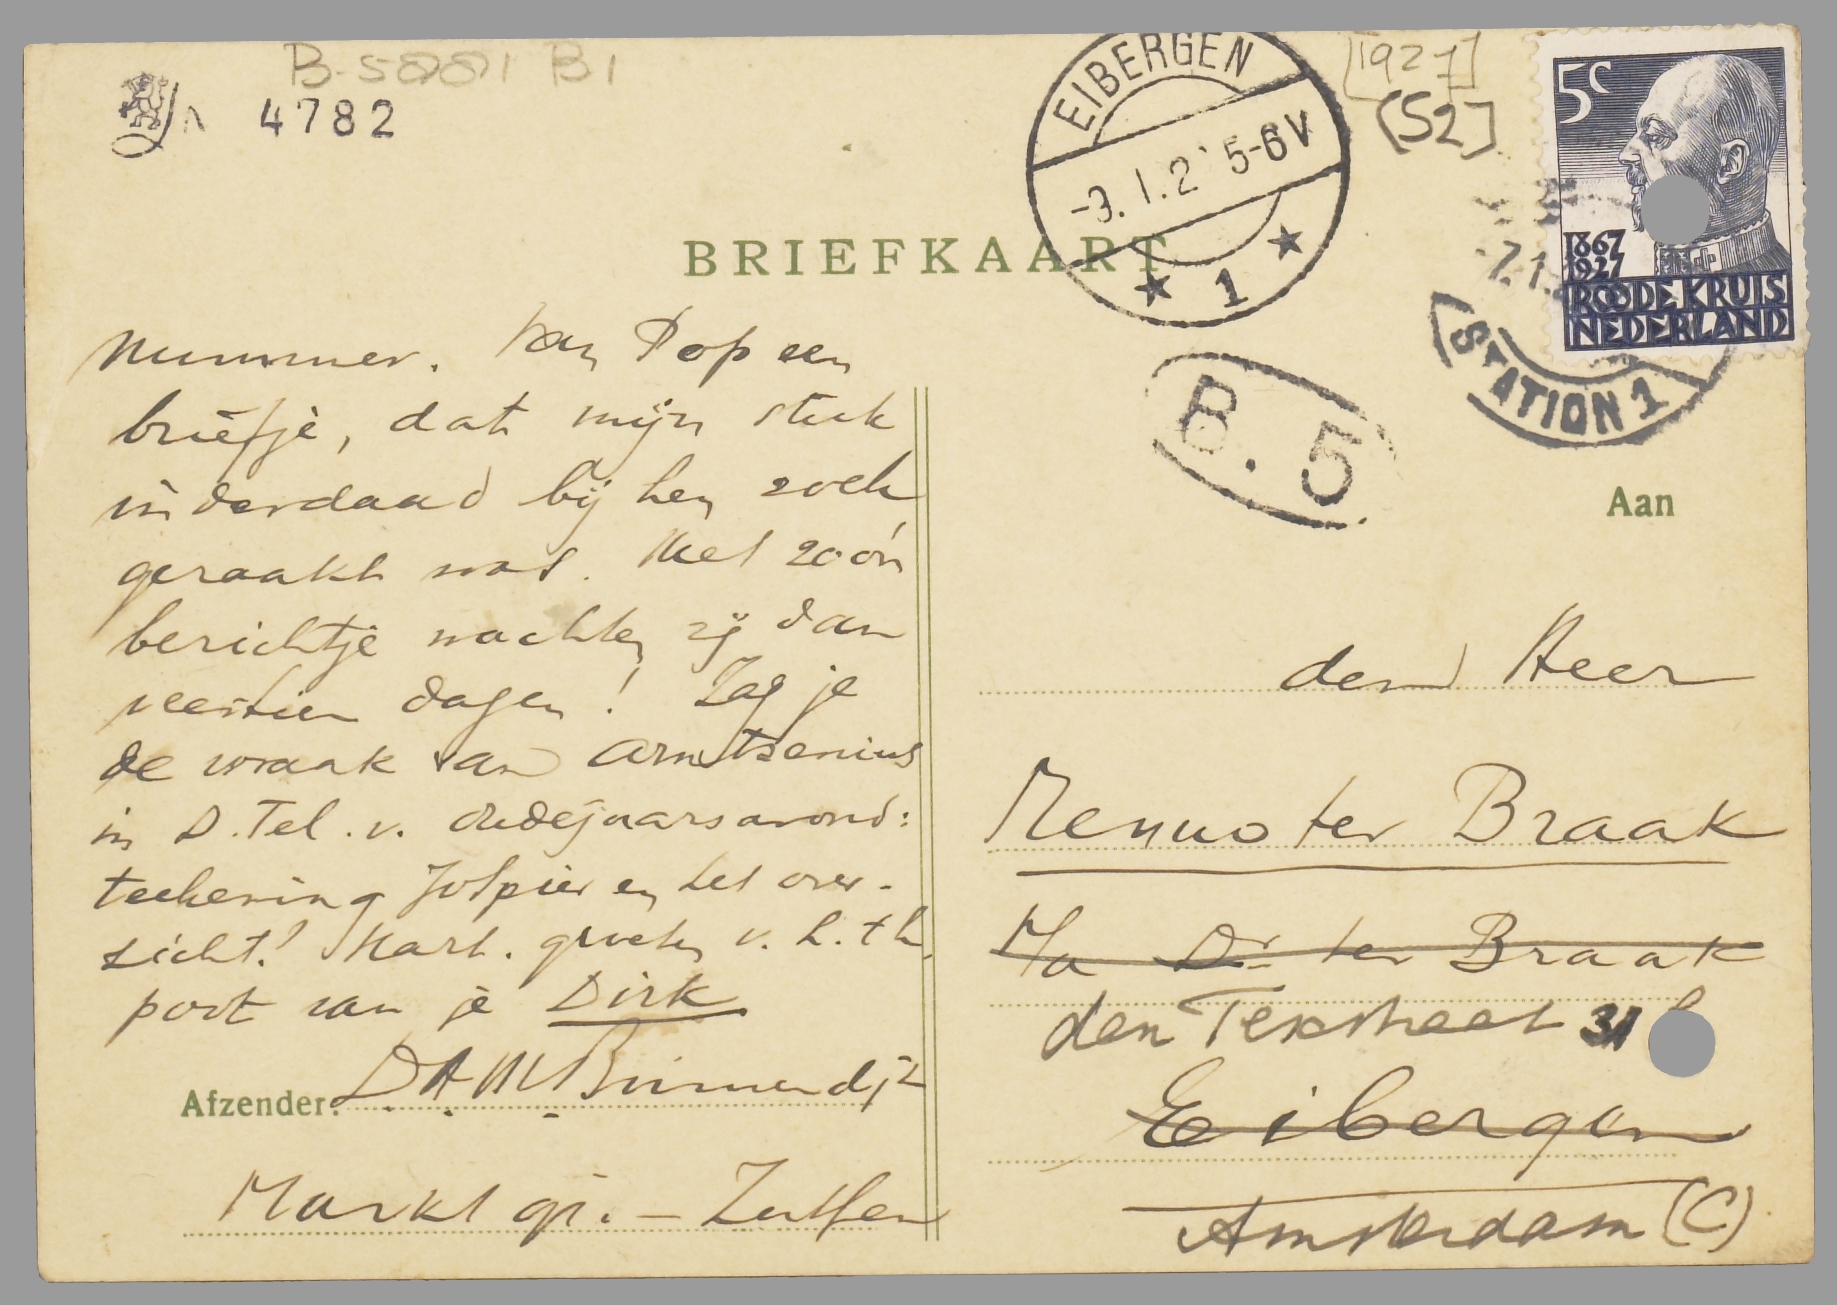 B 5001 B1
4782
EIBERGEN
-3.1.2 5-6V
1
[1927]
[52]
5c
1867
1927
ROODE KRUIS
NEDERLAND
7.1.
STATION 1
BRIEFKAART
B. 5
nummer. Van Pop een
briefje, dat mijn stuk
inderdaad bij hen zoek
geraakt was. Met zoo'n
berichtje wachten zij dan
veertien dagen! Zag je
de wraak van Arntzenius
in D. Tel. v. Oudejaarsavond:
teekening en het over-
zicht! Hart. groeten v. h. t. h.
poot van je Dirk
Afzender: D.A.M. Binnendijk
Markt 91. – Zutfen
Aan
den Heer
Menno ter Braak
p/a Dr ter Braak
den Texstraat 31
Eibergen
Amsterdam (C)